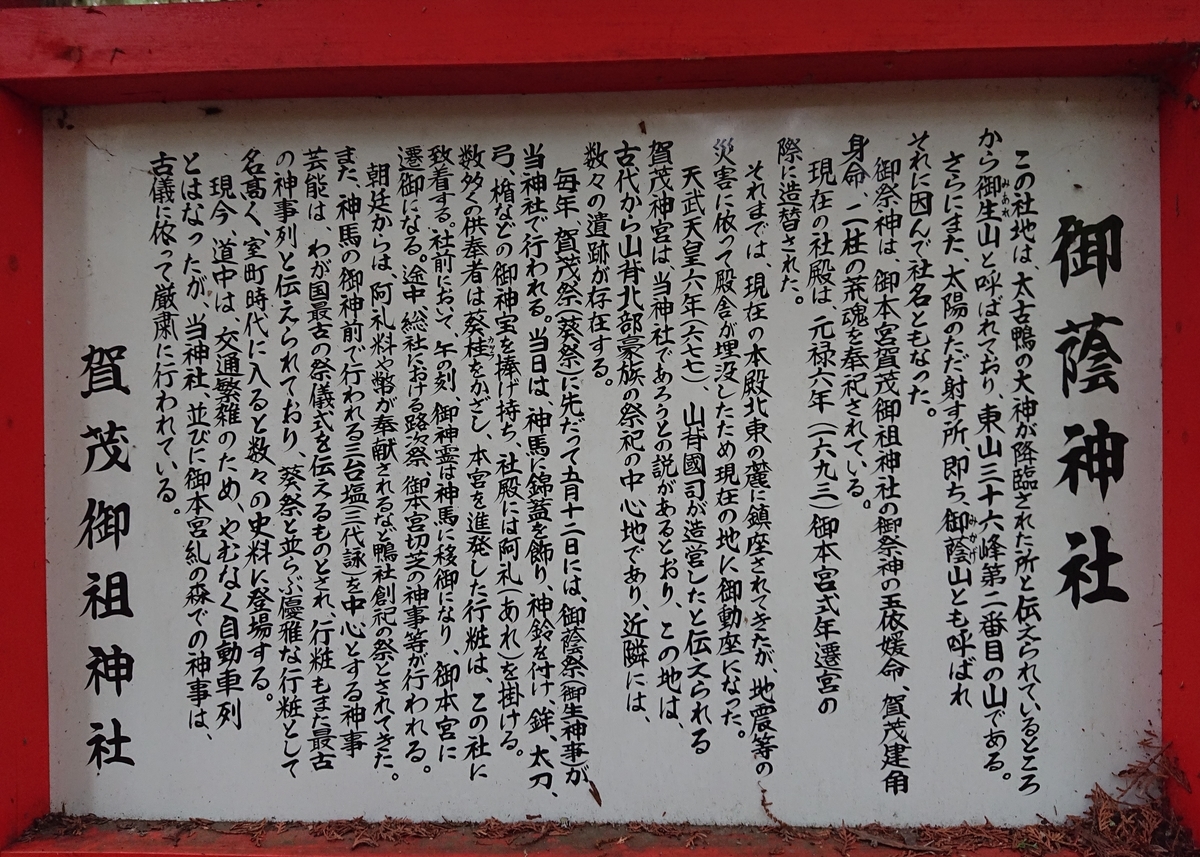 御蔭神社
この社地は、太古鴨の大神が降臨された所と伝えられているところ
から御生山と呼ばれており、東山三十六峰第二番目の山である。
みあれ
さらにまた、太陽のただ射す所、即ち、御蔭山とも呼ばれ
みかげ
それに因んで社名ともなった。
御祭神は、御本宮賀茂御祖神社の御祭神の玉依媛命、賀茂建角
身命、二柱の荒魂を奉祀されている。
現在の社殿は、元禄六年(一六九三)御本宮式年遷宮の
際に造替された。
それまでは、現在の本殿北東の麓に鎮座されてきたが、地震等の
災害に依って殿舎が埋没したため現在の地に御動座になった。
天武天皇六年(六七七)、山背國司が造営したと伝えられる
賀茂神宮は当神社であろうとの説があるとおり、この地は、
古代から山背北部豪族の祭祀の中心地であり、近隣には、
数々の遺跡が存在する。
毎年、賀茂祭(葵祭)に先だって五月十二日には、御蔭祭(御生神事)が
当神社で行われる。当日は、神馬に錦蓋を飾り、神鈴を付け、鉾、太刀、
弓、楯などの御神宝を捧げ持ち、社殿には阿礼(あれ)を掛ける。
数多くの供奉者は葵桂をかざし、本宮を進発した行粧は、この社に
カツラ
致着する。社前において、午の刻、御神霊は神馬に移御になり、御本宮に
遷御になる。途中、総社における路次祭、御本宮切芝の神事等が行われる。
朝廷からは、阿礼料や幣が奉献されるなど鴨社創祀の祭とされてきた。
また、神馬の御神前で行われる三台塩(三代詠)を中心とする神事
芸能は、わが国最古の祭儀式を伝えるものとされ、行粧もまた最古
の神事列と伝えられており、葵祭と並らぶ優雅な行粧として
名高く、室町時代に入ると数々の史料に登場する。
現今、道中は、交通繁雑のため、やむなく自動車列
とはなったが、当神社、並びに御本宮糺の森での神事は、
古儀に依って厳粛に行われている。
賀茂御祖神社